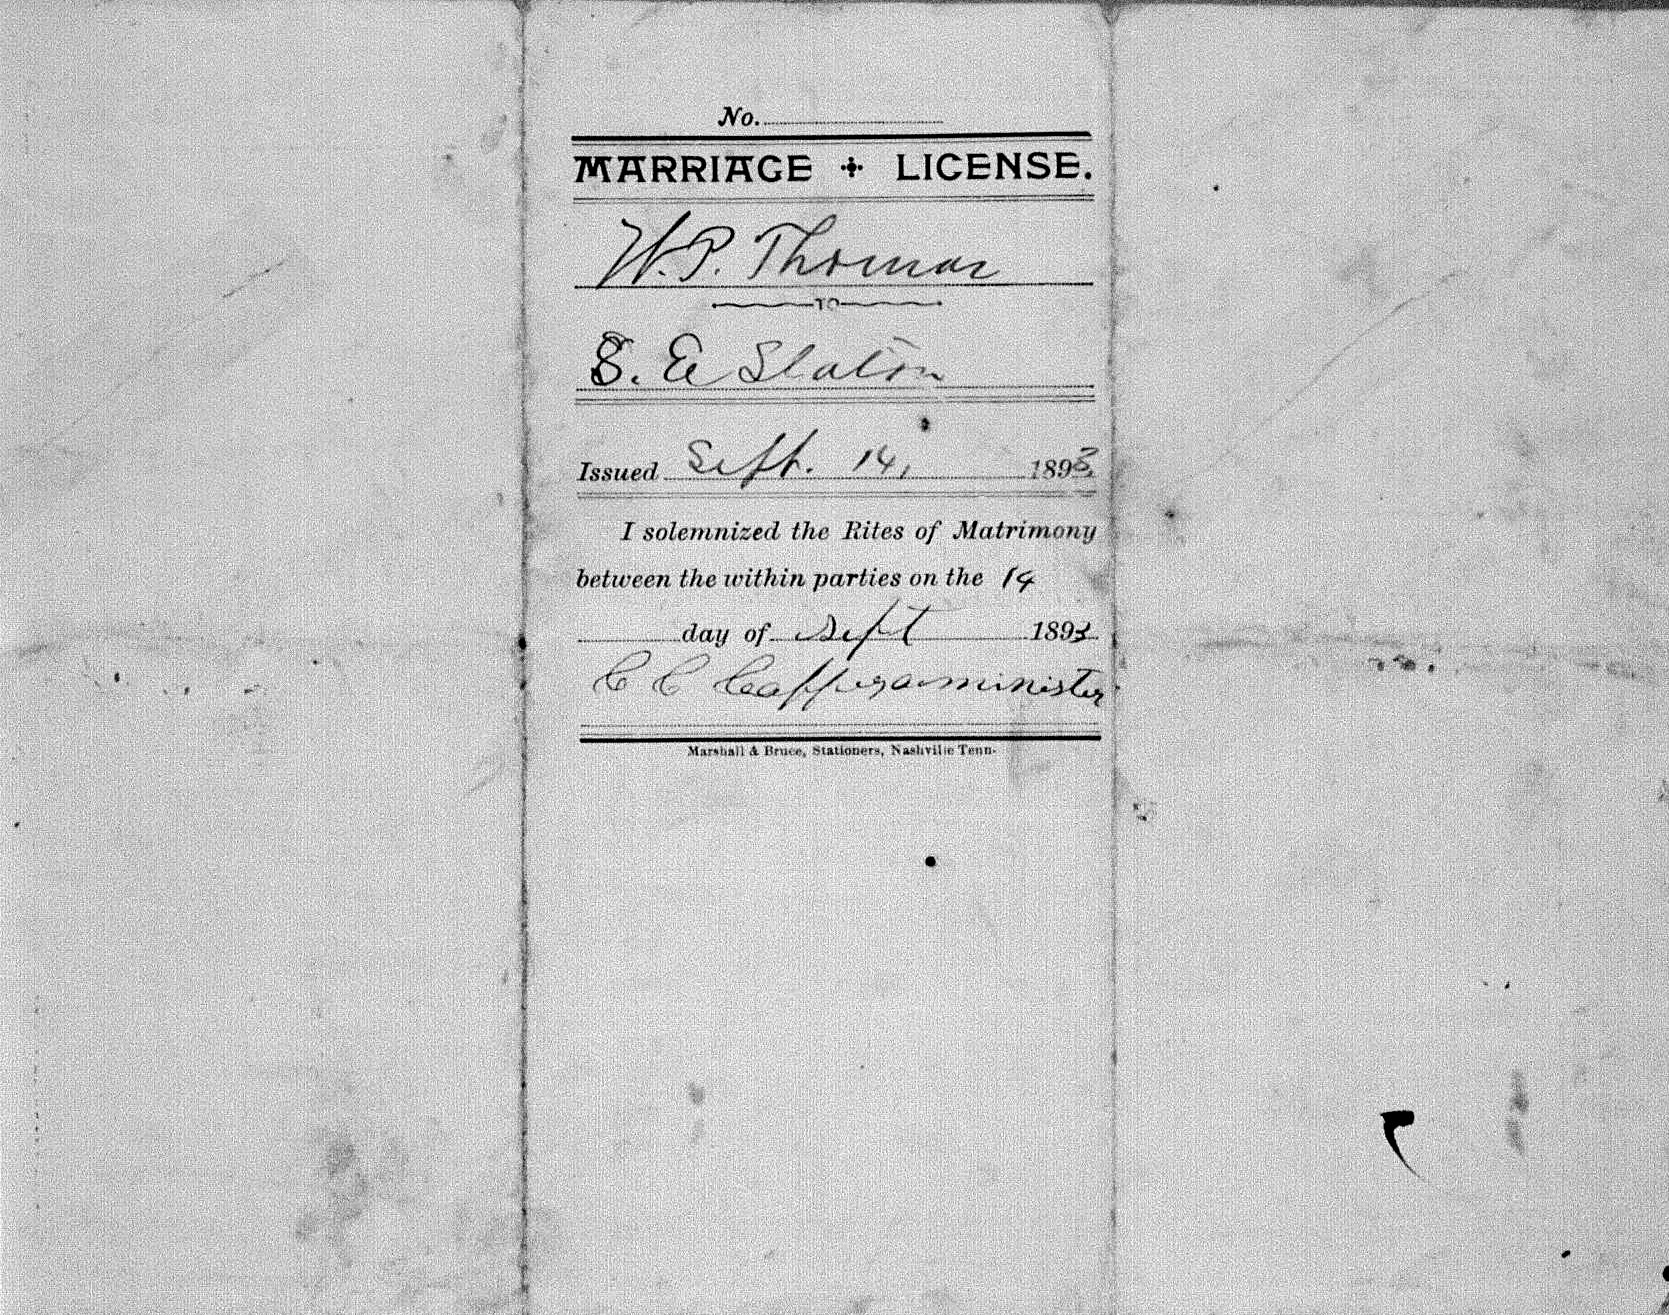 No.
MARRIAGE LICENSE.
W. P. Thomas
TO
S. E Slaton
Issued Sept. 14, 1893
I solemnized the Rites of Matrimony
between the within parties on the 14
day of Sept 1893
C C minister
Marshall & Bruce, Stationers, Nashville Tenn.